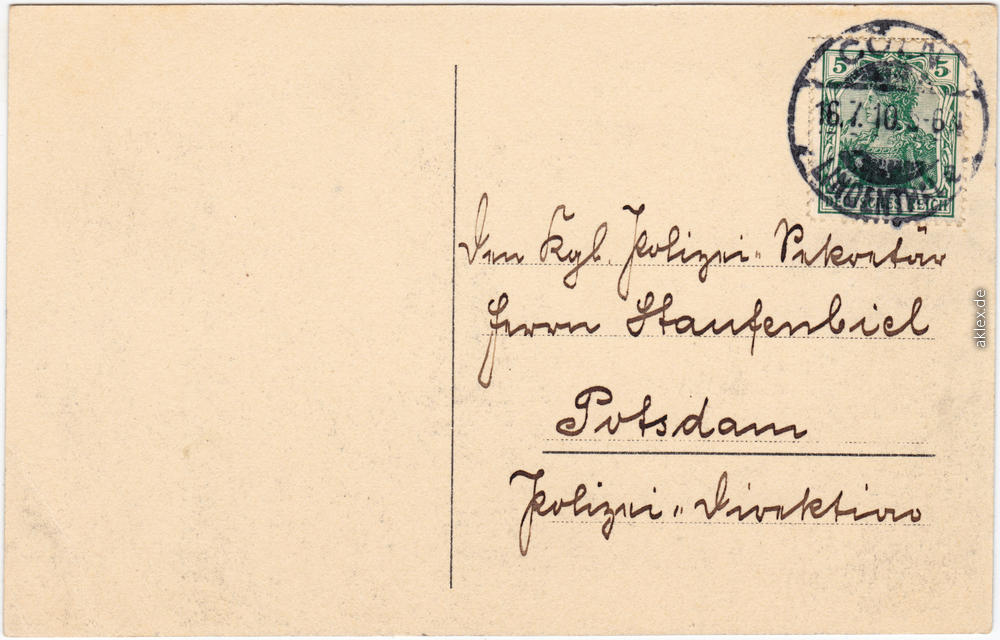 5 5
CÖLN
16.7.10. 5-6N
LINDENTHAL
DEUTSCHES REICH
Den Kgl. Polizei-Sekretär
Herrn Staufenbiel
Potsdam
Polizei-Direktion
aklex.de